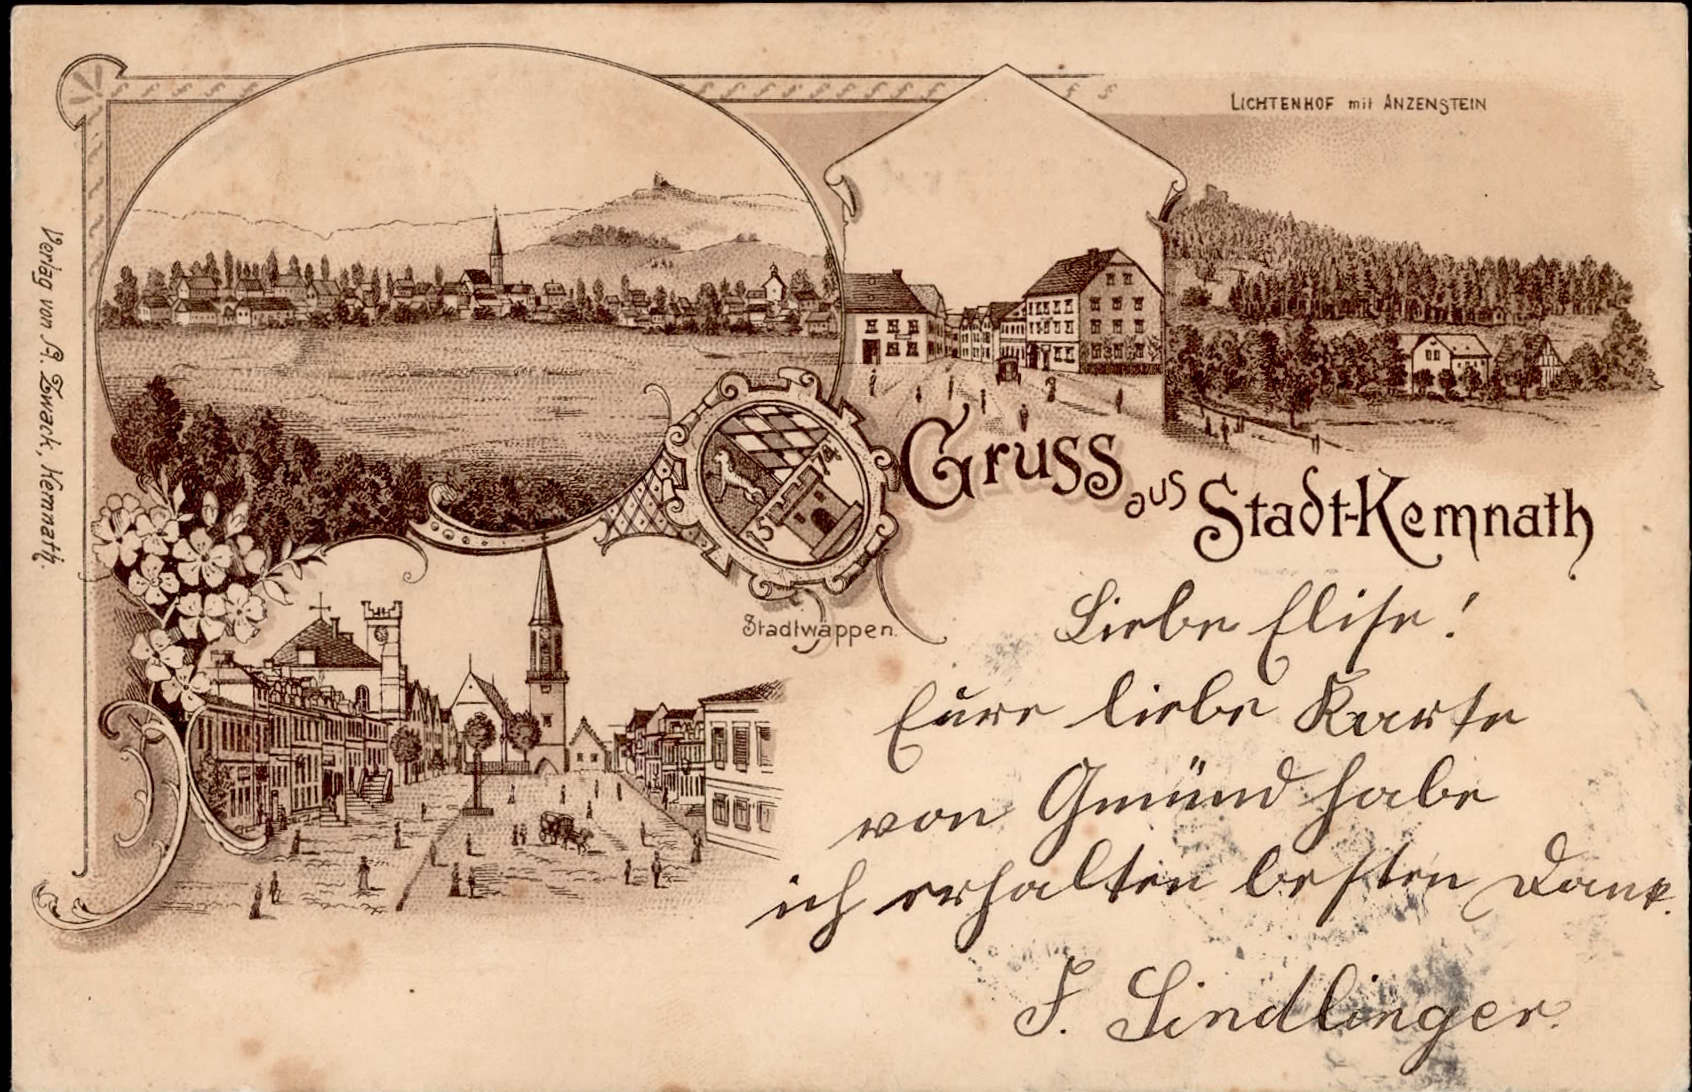 LICHTENHOF mit ANZENSTEIN
Verlag von A. Zwack, Kemnath.
1574
Gruss aus Stadt-Kemnath
Stadtwappen.
Liebe Elise!
Eure liebe Karte
von Gmünd habe
ich erhalten besten Dank.
J. Lindlinger.